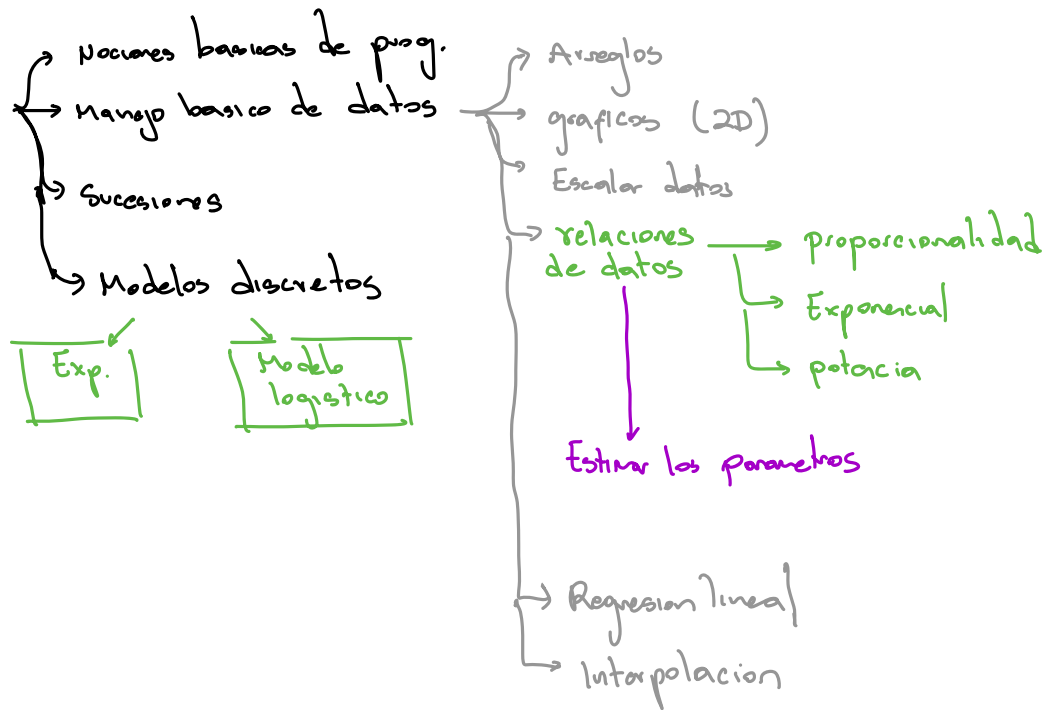 Nociones basicas de prog.
Manejo basico de datos
Sucesiones
Modelos discretos
Exp.
Modelo
logistico
Arreglos
graficos (2D)
Escalar datos
relaciones
de datos
proporcionalidad
Exponencial
potacia
Estimar los parametros
Regresion lineal
Interpolacion